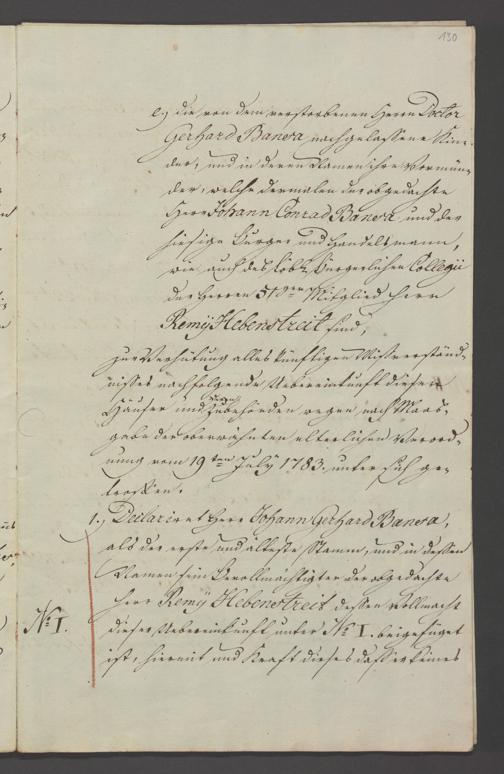 130
e.) die von dem verstorbenen Herrn Doctor
Gerhard Bansa nachgelassene Kin-
der, und in deren Namen ihre Vormün-
der, welche dermalen der obgedachte
Herr Johann Conrad Bansa und der
hiesige Burger und Handelsmann,
wie auch des löbl. Burgerlichen Collegii
der Herren 51er Mitglied Herr
Remÿ Hebenstreit sind,
zur Verhütung alles künftigen Missverständ-
nisses nachfolgende Uebereinkunft dieser
Häuser und Zubehörden wegen, nach Maas-
gabe der oberwähnten elterlichen Verord-
nung vom 19ten July 1783. unter sich ge-
troffen.
1.) Declariret Herr Johann Gerhard Bansa,
als der erste und älteste Stamm, und in dessen
Namen sein Bevollmächtigter der obgedachte
Herr Remÿ Hebenstreit dessen Vollmacht
No. I.
dieser Uebereinkunft unter No. I. beigefüget
ist, hiermit und Kraft dieses dass er keines